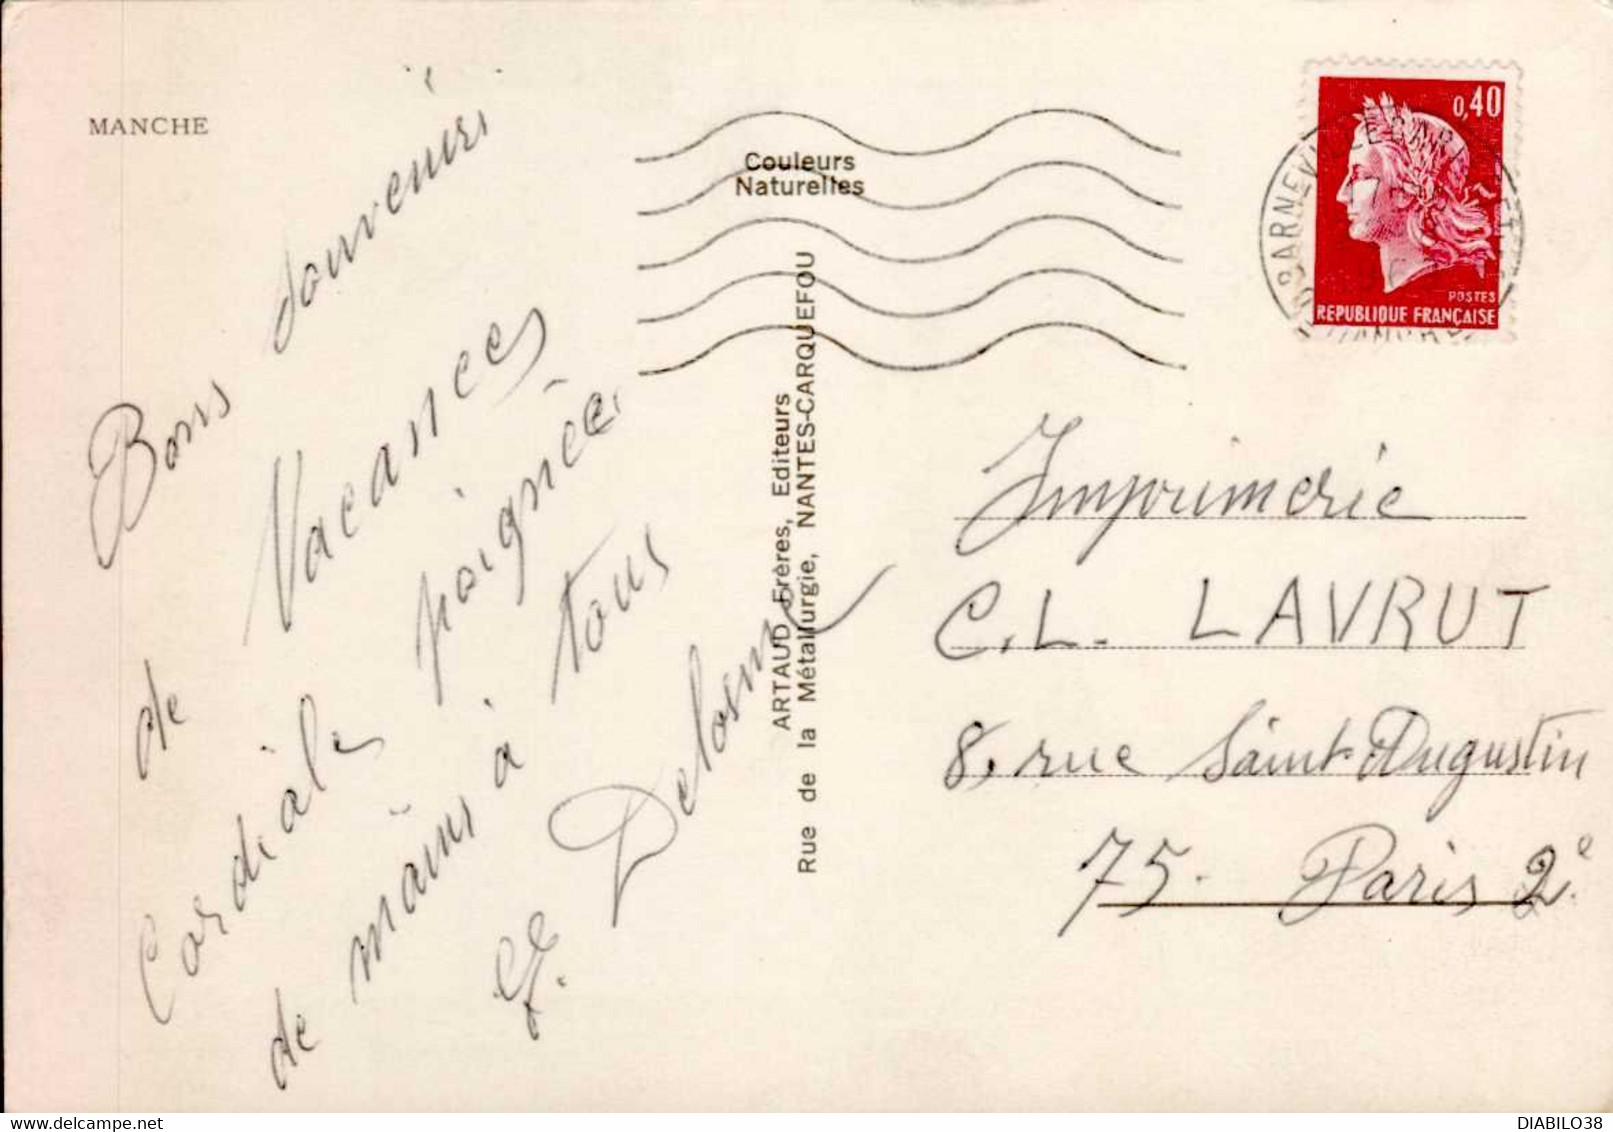 MANCHE
Bons souvenirs
de Vacances
Cordiale poignée
de mains à tous
Couleurs
Naturelles
ARTAUD Frères, Editeurs
Rue de la Métallurgie, NANTES-CARQUEFOU
0,40
POSTES
REPUBLIQUE FRANÇAISE
BARNEVILLE
Imprimerie
C.L. LAVRUT
8, rue Saint Augustin
75. Paris 2e
DIABILO38